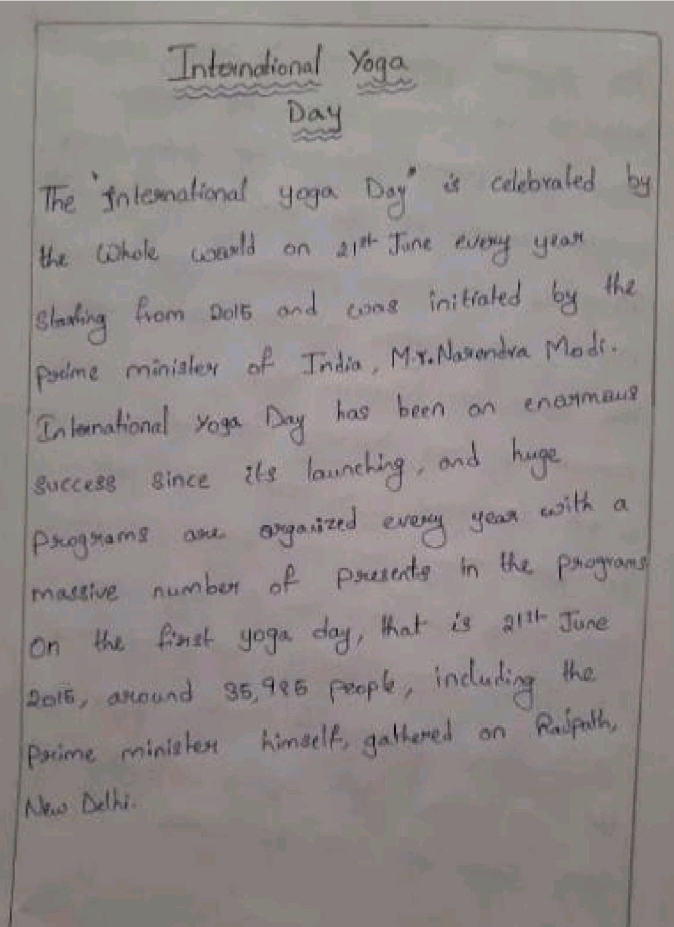 International Yoga
Day
The "International yoga Day" is celebrated by
the whole world on 21st June every year
starting from 2015 and was initiated by the
prime minister of India, M.r. Narendra Modi.
International Yoga Day has been an enormous
success since its launching, and huge
programs are organized every year with a
massive number of presents in the programs
On the first yoga day, that is 21st June
2015, around 35,985 people, including the
prime minister himself, gathered on Rajpath,
New Delhi.